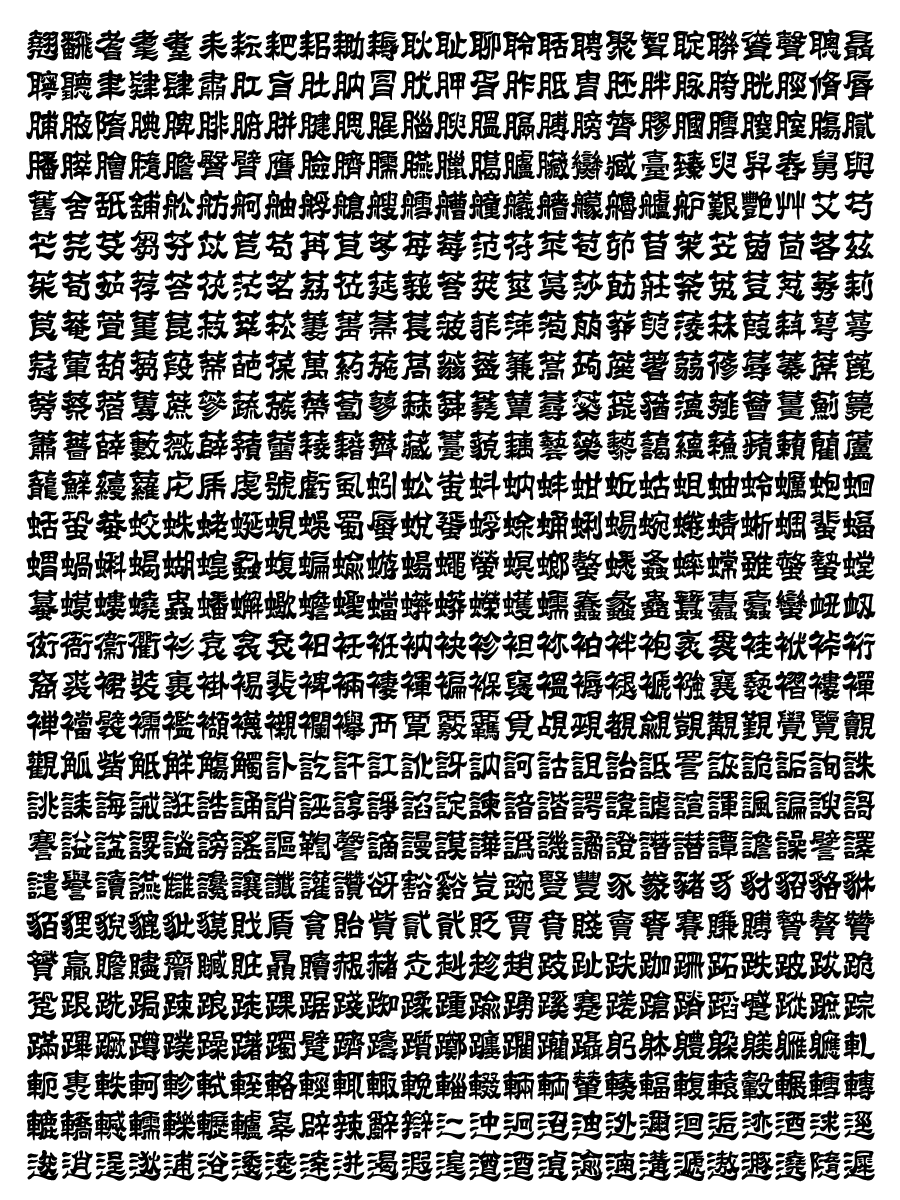 翹飜耆耄耋耒耘耙耜耡耨耿耻聊聆聒聘聚聟聢聨聳聲聰聶
聹聽聿肄肆肅肛肓肚肭冐肬胛胥胙胝胄胚胖脉胯胱脛脩脣
脯腋隋腆脾腓腑胼腱腮腥腦腴膃膈膊膀膂膠膕膤膣腟膓膩
膰膵膾膸膽臀臂膺臉臍臑臙臘臈臚臟臠臧臺臻臾舁舂舅與
舊舍舐舖舩舫舸舳艀艙艘艝艚艟艤艢艨艪艫舮艱艷艸艾芍
芒芫芟芻芬苡苣苟苒苴苳苺莓范苻苹苞茆苜茉苙茵茴茖茲
茱荀茹荐荅茯茫茗茘莅莚莪莟莢莖茣莎莇莊荼莵荳荵莠莉
莨菴萓菫菎菽萃菘萋菁菷萇菠菲萍萢萠莽萸蔆菻葭萪萼蕚
蒄葷葫蒭葮蒂葩葆萬葯葹萵蓊葢蒹蒿蒟蓙蓍蒻蓚蓐蓁蓆蓖
蒡蔡蓿蓴蔗蔘蔬蔟蔕蔔蓼蕀蕣蕘蕈蕁蘂蕋蕕薀薤薈薑薊薨
蕭薔薛藪薇薜蕷蕾薐藉薺藏薹藐藕藝藥藜藹蘊蘓蘋藾藺蘆
蘢蘚蘰蘿虍乕虔號虧虱蚓蚣蚩蚪蚋蚌蚶蚯蛄蛆蚰蛉蠣蚫蛔
蛞蛩蛬蛟蛛蛯蜒蜆蜈蜀蜃蛻蜑蜉蜍蛹蜊蜴蜿蜷蜻蜥蜩蜚蝠
蝟蝸蝌蝎蝴蝗蝨蝮蝙蝓蝣蝪蠅螢螟螂螯蟋螽蟀蟐雖螫蟄螳
蟇蟆螻蟯蟲蟠蠏蠍蟾蟶蟷蠎蟒蠑蠖蠕蠢蠡蠱蠶蠹蠧蠻衄衂
衒衙衞衢衫袁衾袞衵衽袵衲袂袗袒袮袙袢袍袤袰袿袱裃裄
裔裘裙裝裹褂裼裴裨裲褄褌褊褓襃褞褥褪褫襁襄褻褶褸襌
褝襠襞襦襤襭襪襯襴襷襾覃覈覊覓覘覡覩覦覬覯覲覺覽覿
觀觚觜觝觧觴觸訃訖訐訌訛訝訥訶詁詛詒詆詈詼詭詬詢誅
誂誄誨誡誑誥誦誚誣諄諍諂諚諫諳諧諤諱謔諠諢諷諞諛謌
謇謚諡謖謐謗謠謳鞫謦謫謾謨譁譌譏譎證譖譛譚譫譟譬譯
譴譽讀讌讎讒讓讖讙讚谺豁谿豈豌豎豐豕豢豬豸豺貂貉貅
貊貍貎貔豼貘戝貭貪貽貲貳貮貶賈賁賤賣賚賽賺賻贄贅贊
贇贏贍贐齎贓賍贔贖赧赭赱赳趁趙跂趾趺跏跚跖跌跛跋跪
跫跟跣跼踈踉跿踝踞踐踟蹂踵踰踴蹊蹇蹉蹌蹐蹈蹙蹤蹠踪
蹣蹕蹶蹲蹼躁躇躅躄躋躊躓躑躔躙躪躡躬躰軆躱躾軅軈軋
軛軣軼軻軫軾輊輅輕輒輙輓輜輟輛輌輦輳輻輹轅轂輾轌轉
轆轎轗轜轢轣轤辜辟辣辭辯辷迚迥迢迪迯邇迴逅迹迺逑逕
逡逍逞逖逋逧逶逵逹迸遏遐遑遒逎遉逾遖遘遞遨遯遶隨遲